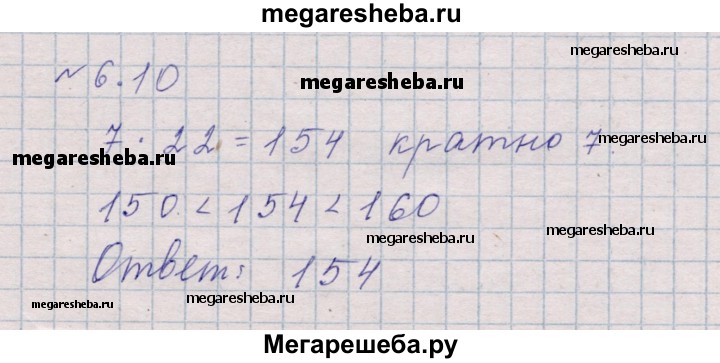 megaresheba.ru
megaresheba.ru
№ 6.10
megaresheba.ru
7 · 22 = 154 кратно 7.
megaresheba.ru
150 < 154 < 160
megaresheba.ru
megaresheba.ru
Ответ: 154
megaresheba.ru
megaresheba.ru
megaresheba.ru
Мегарешеба.ру